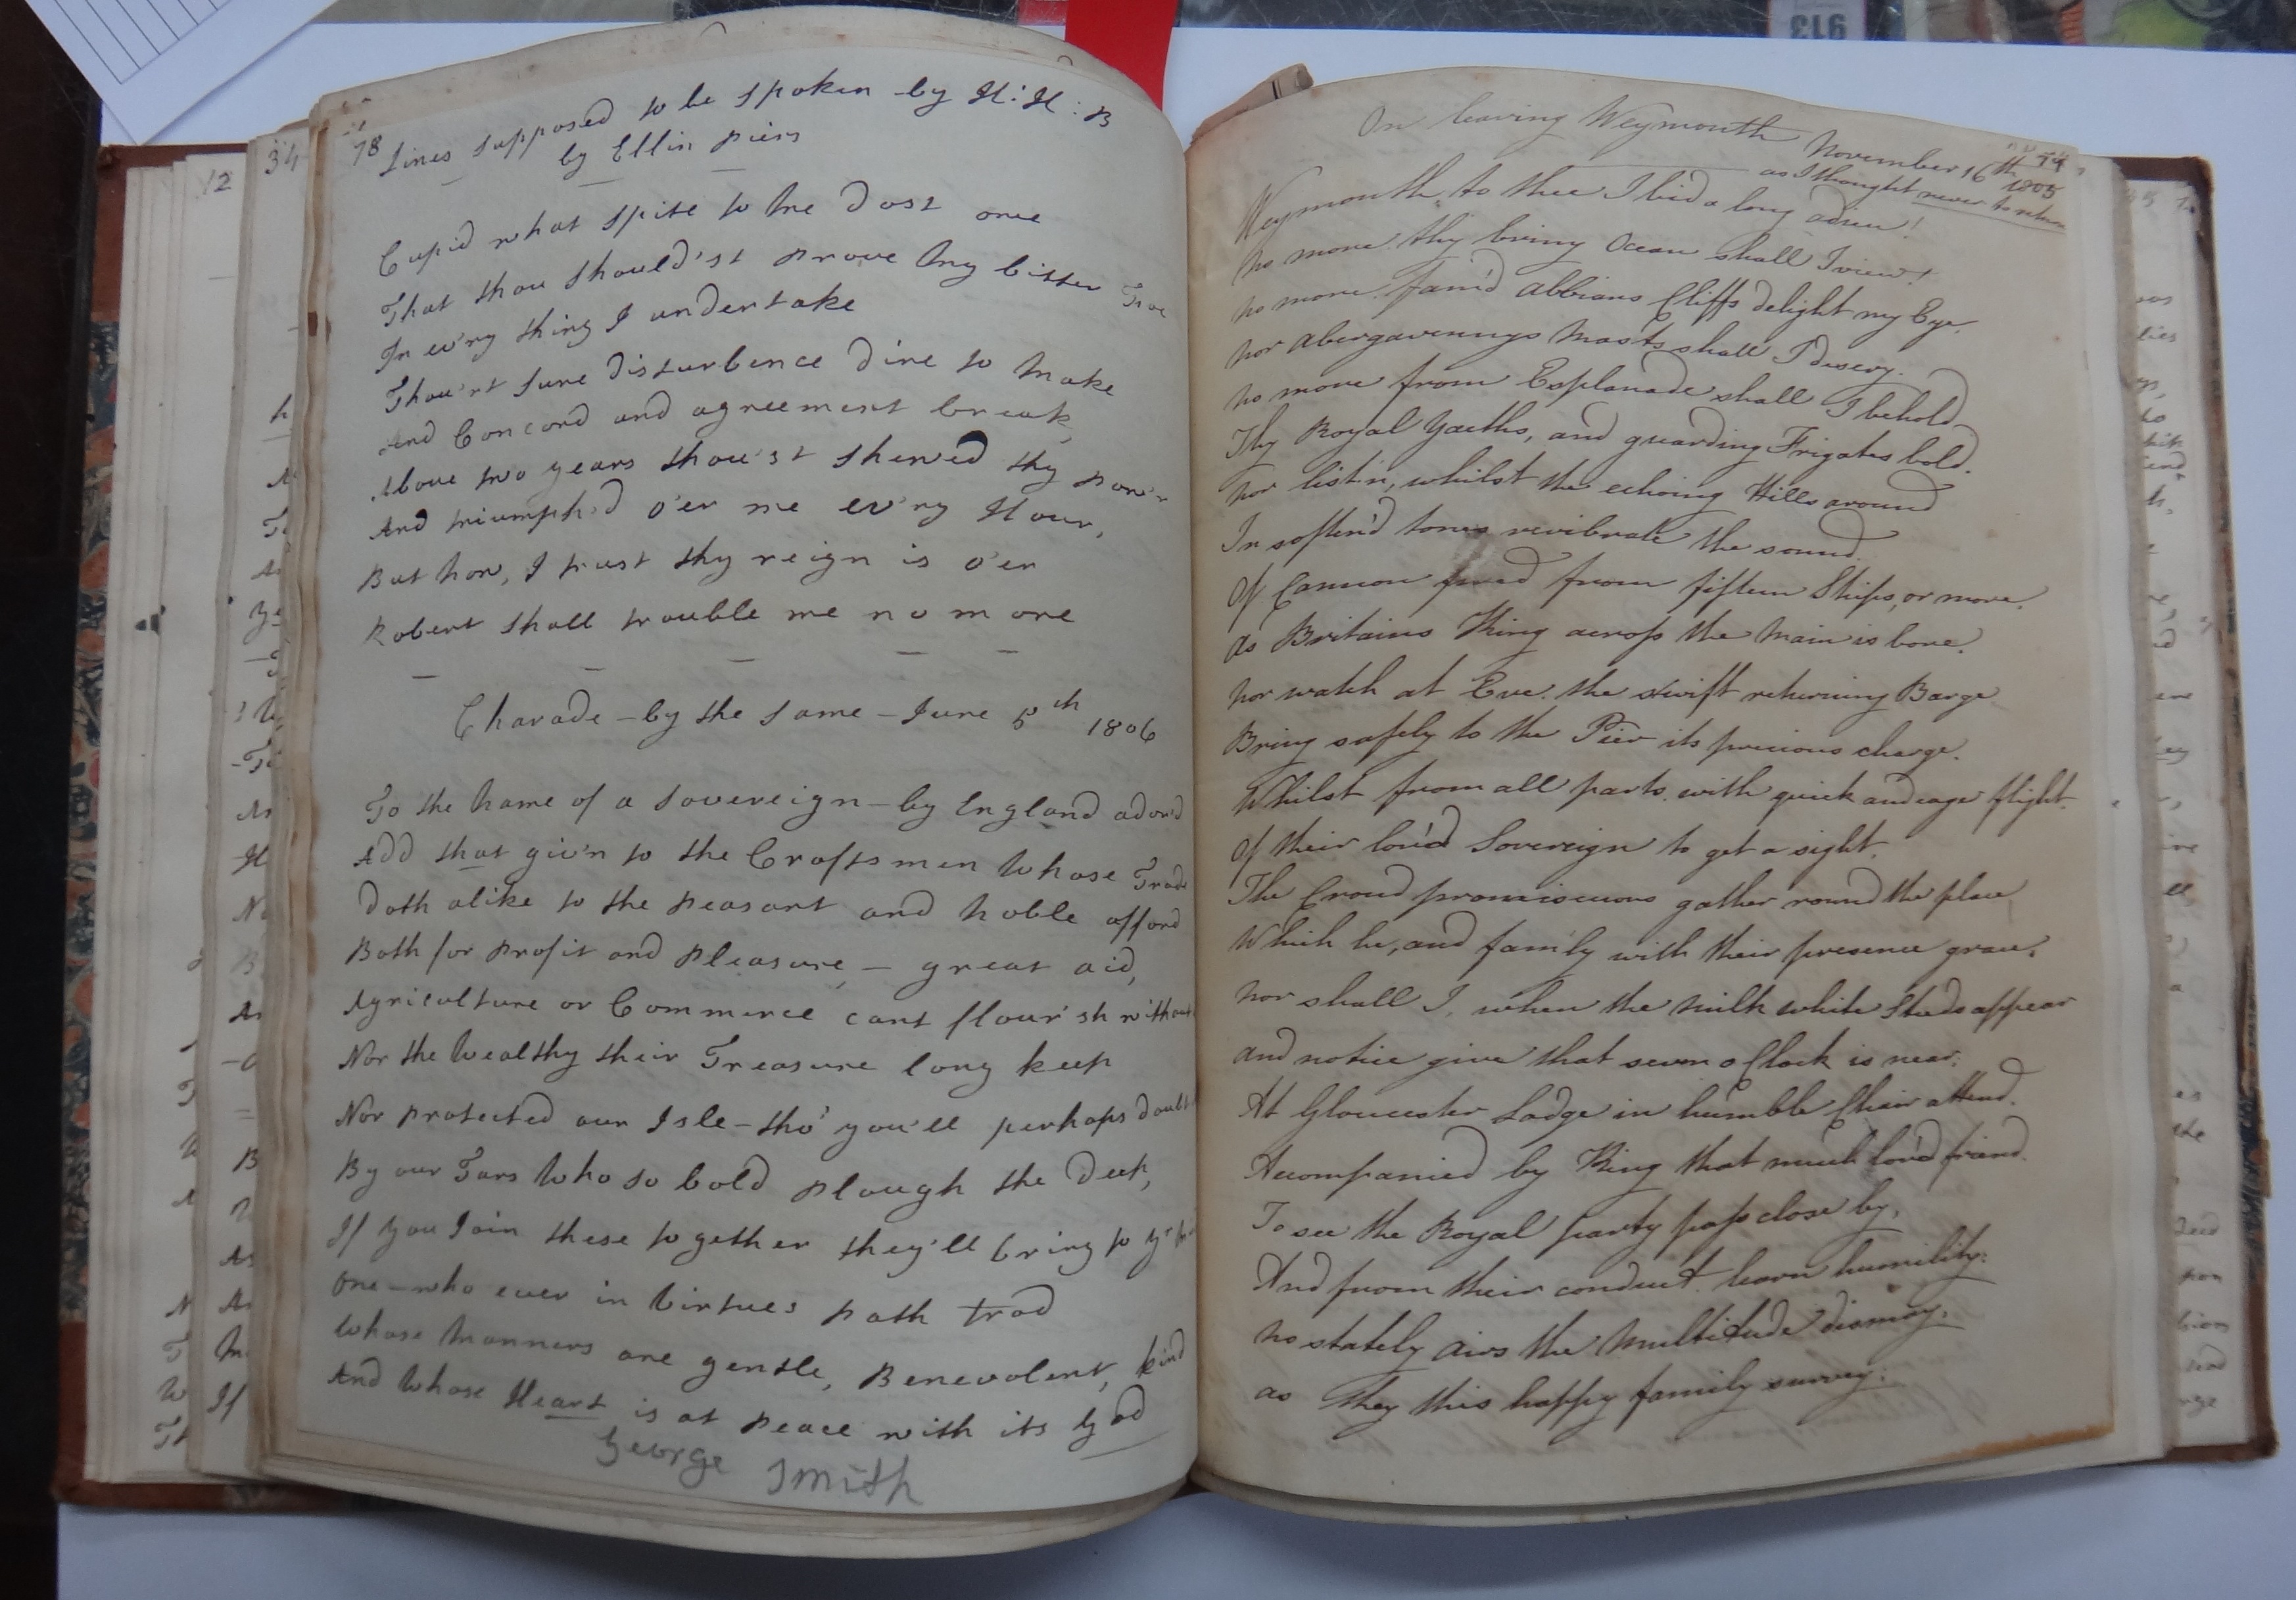 78
Lines supposed to be spoken by H: H: B
by Ellin Piers
Cupid what spite to me dost owe
That thou should'st prove my bitter Foe
In ev'ry thing I undertake
Thou'rt sure disturbence dire to make
And Concord and agreement break,
Above two years thou'st shewed thy pow'r
And triumph'd o'er me ev'ry Hour,
But now, I trust thy reign is o'er
Robert shall trouble me no more
Charade - by the same - June 5th 1806
To the name of a sovereign - by England ador'd
Add that giv'n to the Craftsmen whose Trade
Doth alike to the Peasant and noble afford
Both for Profit and Pleasure, - great aid,
Agriculture or Commerce cant flour'sh without
Nor the Wealthy their Treasure long keep
Nor protected our Isle - tho' you'll perhaps doubt
By our Tars who so bold plough the Deep,
If you Join these together they'll bring to yr
One - who ever in Virtues path trod
Whose manners are gentle, Benevolent, kind
And Whose Heart is at peace with its God
George Smith
On leaving Weymouth November 16th 1805
79
as I thought never to return
Weymouth, to thee I bid a long adieu!
no more thy briny Ocean shall I view!
no more fam'd Albians Cliffs delight my Eye.
nor Abergavennys Masts shall I descry.
no more from Esplanade shall I behold
Thy Royal Yacths, and guarding Frigates bold.
nor list'n, whilst the echoing Hills around
In soften'd tones revibrate the sound.
Of Cannon fired from fifteen Ships, or more.
as Britains King across the Main is bore.
nor watch at Eve. the swift returning Barge
Bring safely to the Pier its precious charge.
Whilst from all parts. with quick and eager flight.
Of their lov'd Sovereign to get a sight.
The Croud promiscuous gather round the place
Which he, and family with their presence grace.
nor shall I, when the milk white Steeds appear
and notice give that seven o Clock is near.
At Gloucester Lodge in humble Chair attend.
Accompanied by King that much lov'd friend.
To see the Royal party pass close by,
And from their conduct. learn humility.
no stately airs the Multitude dismay.
as they this happy family survey.
12
34
913